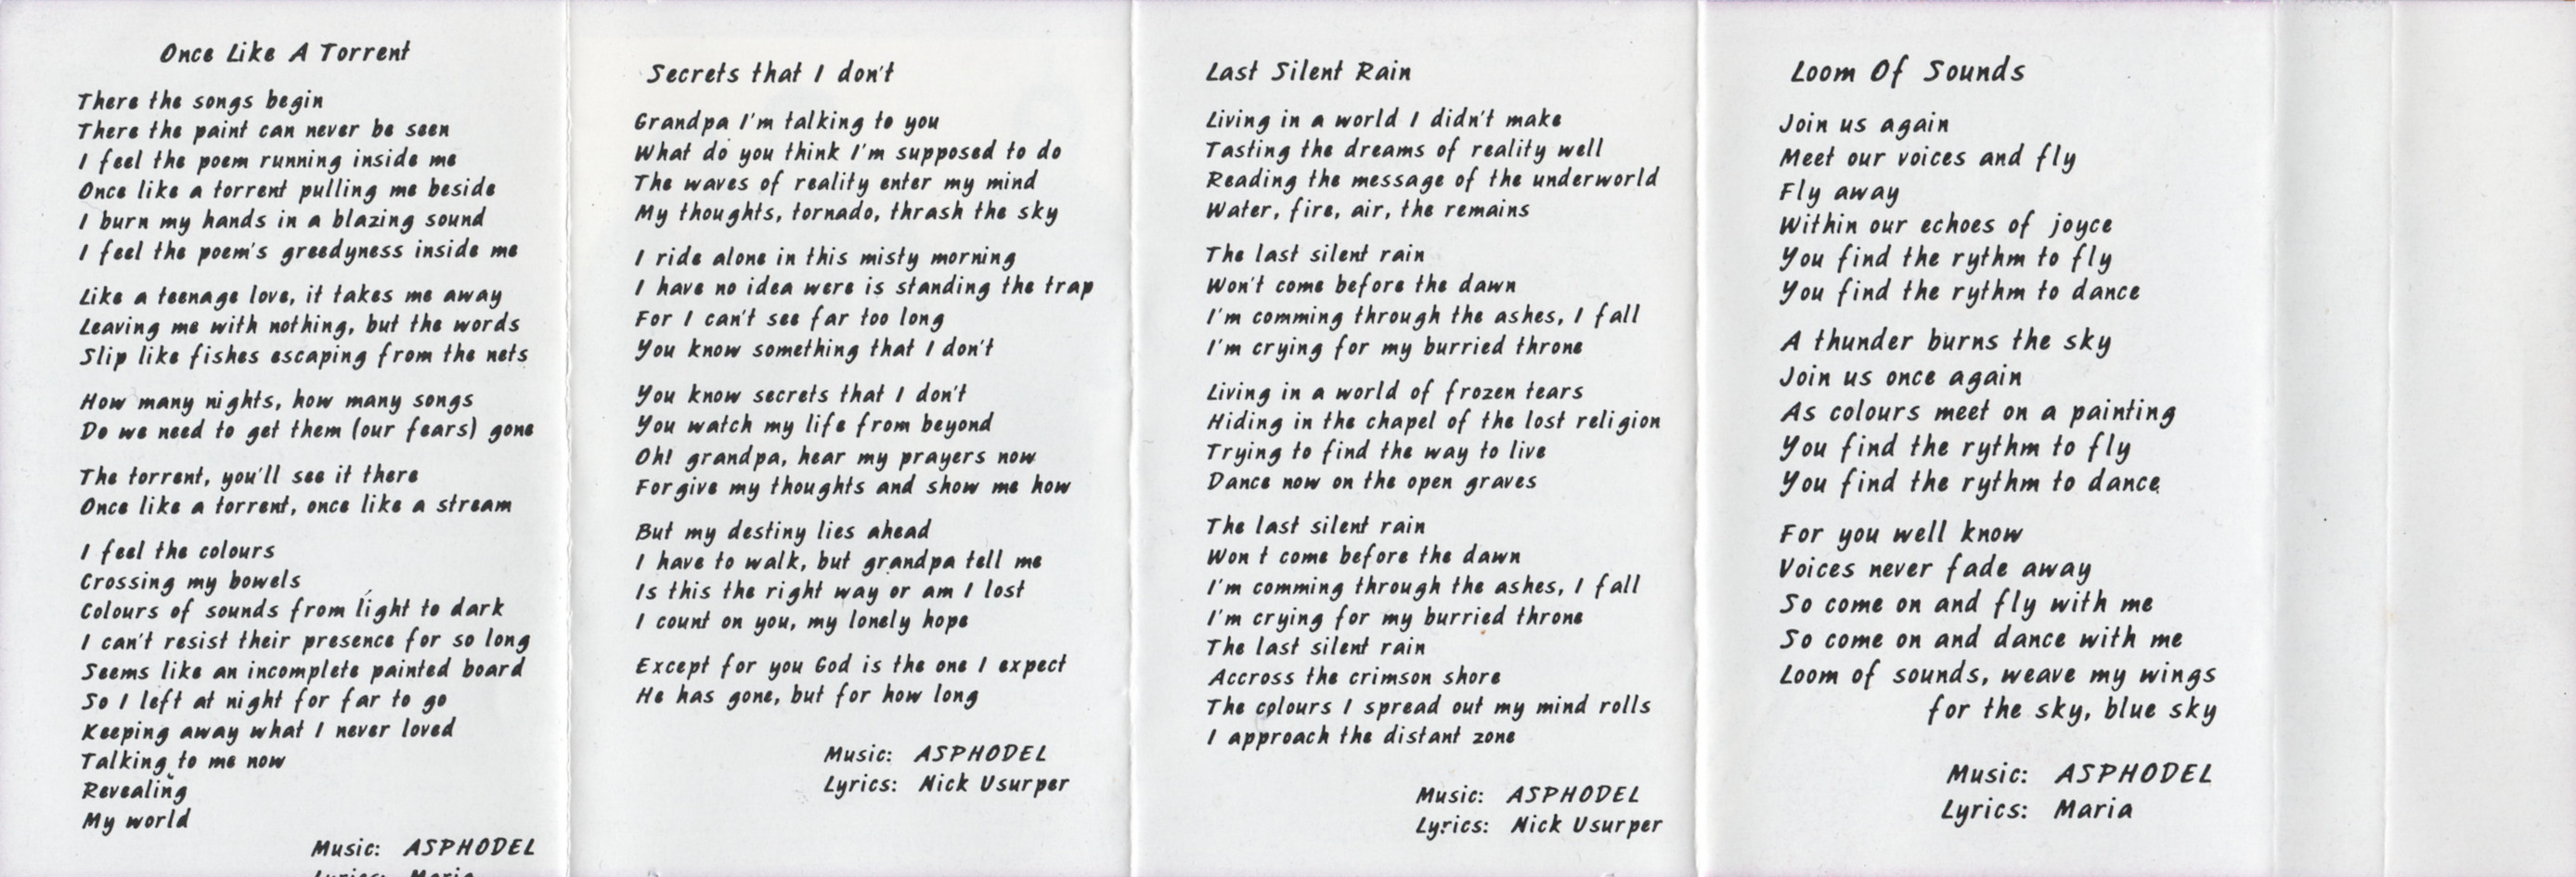 Once Like A Torrent
There the songs begin
There the paint can never be seen
I feel the poem running inside me
Once like a torrent pulling me beside
I burn my hands in a blazing sound
I feel the poem's greedyness inside me
Like a teenage love, it takes me away
Leaving me with nothing, but the words
Slip like fishes escaping from the nets
How many nights, how many songs
Do we need to get them (our fears) gone
The torrent, you'll see it there
Once like a torrent, once like a stream
I feel the colours
Crossing my bowels
Colours of sounds from light to dark
I can't resist their presence for so long
Seems like an incomplete painted board
So I left at night for far to go
Keeping away what I never loved
Talking to me now
Revealing
My world
Music: ASPHODEL
Lyrics: Maria
Secrets that I don't
Grandpa I'm talking to you
What do you think I'm supposed to do
The waves of reality enter my mind
My thoughts, tornado, thrash the sky
I ride alone in this misty morning
I have no idea were is standing the trap
For I can't see far too long
You know something that I don't
You know secrets that I don't
You watch my life from beyond
Oh! grandpa, hear my prayers now
Forgive my thoughts and show me how
But my destiny lies ahead
I have to walk, but grandpa tell me
Is this the right way or am I lost
I count on you, my lonely hope
Except for you God is the one I expect
He has gone, but for how long
Music: ASPHODEL
Lyrics: Nick Usurper
Last Silent Rain
Living in a world I didn't make
Tasting the dreams of reality well
Reading the message of the underworld
Water, fire, air, the remains
The last silent rain
Won't come before the dawn
I'm comming through the ashes, I fall
I'm crying for my burried throne
Living in a world of frozen tears
Hiding in the chapel of the lost religion
Trying to find the way to live
Dance now on the open graves
The last silent rain
Won t come before the dawn
I'm comming through the ashes, I fall
I'm crying for my burried throne
The last silent rain
Accross the crimson shore
The colours I spread out my mind rolls
I approach the distant zone
Music: ASPHODEL
Lyrics: Nick Usurper
Loom Of Sounds
Join us again
Meet our voices and fly
Fly away
Within our echoes of joyce
You find the rythm to fly
You find the rythm to dance
A thunder burns the sky
Join us once again
As colours meet on a painting
You find the rythm to fly
You find the rythm to dance
For you well know
Voices never fade away
So come on and fly with me
So come on and dance with me
Loom of sounds, weave my wings
for the sky, blue sky
Music: ASPHODEL
Lyrics: Maria